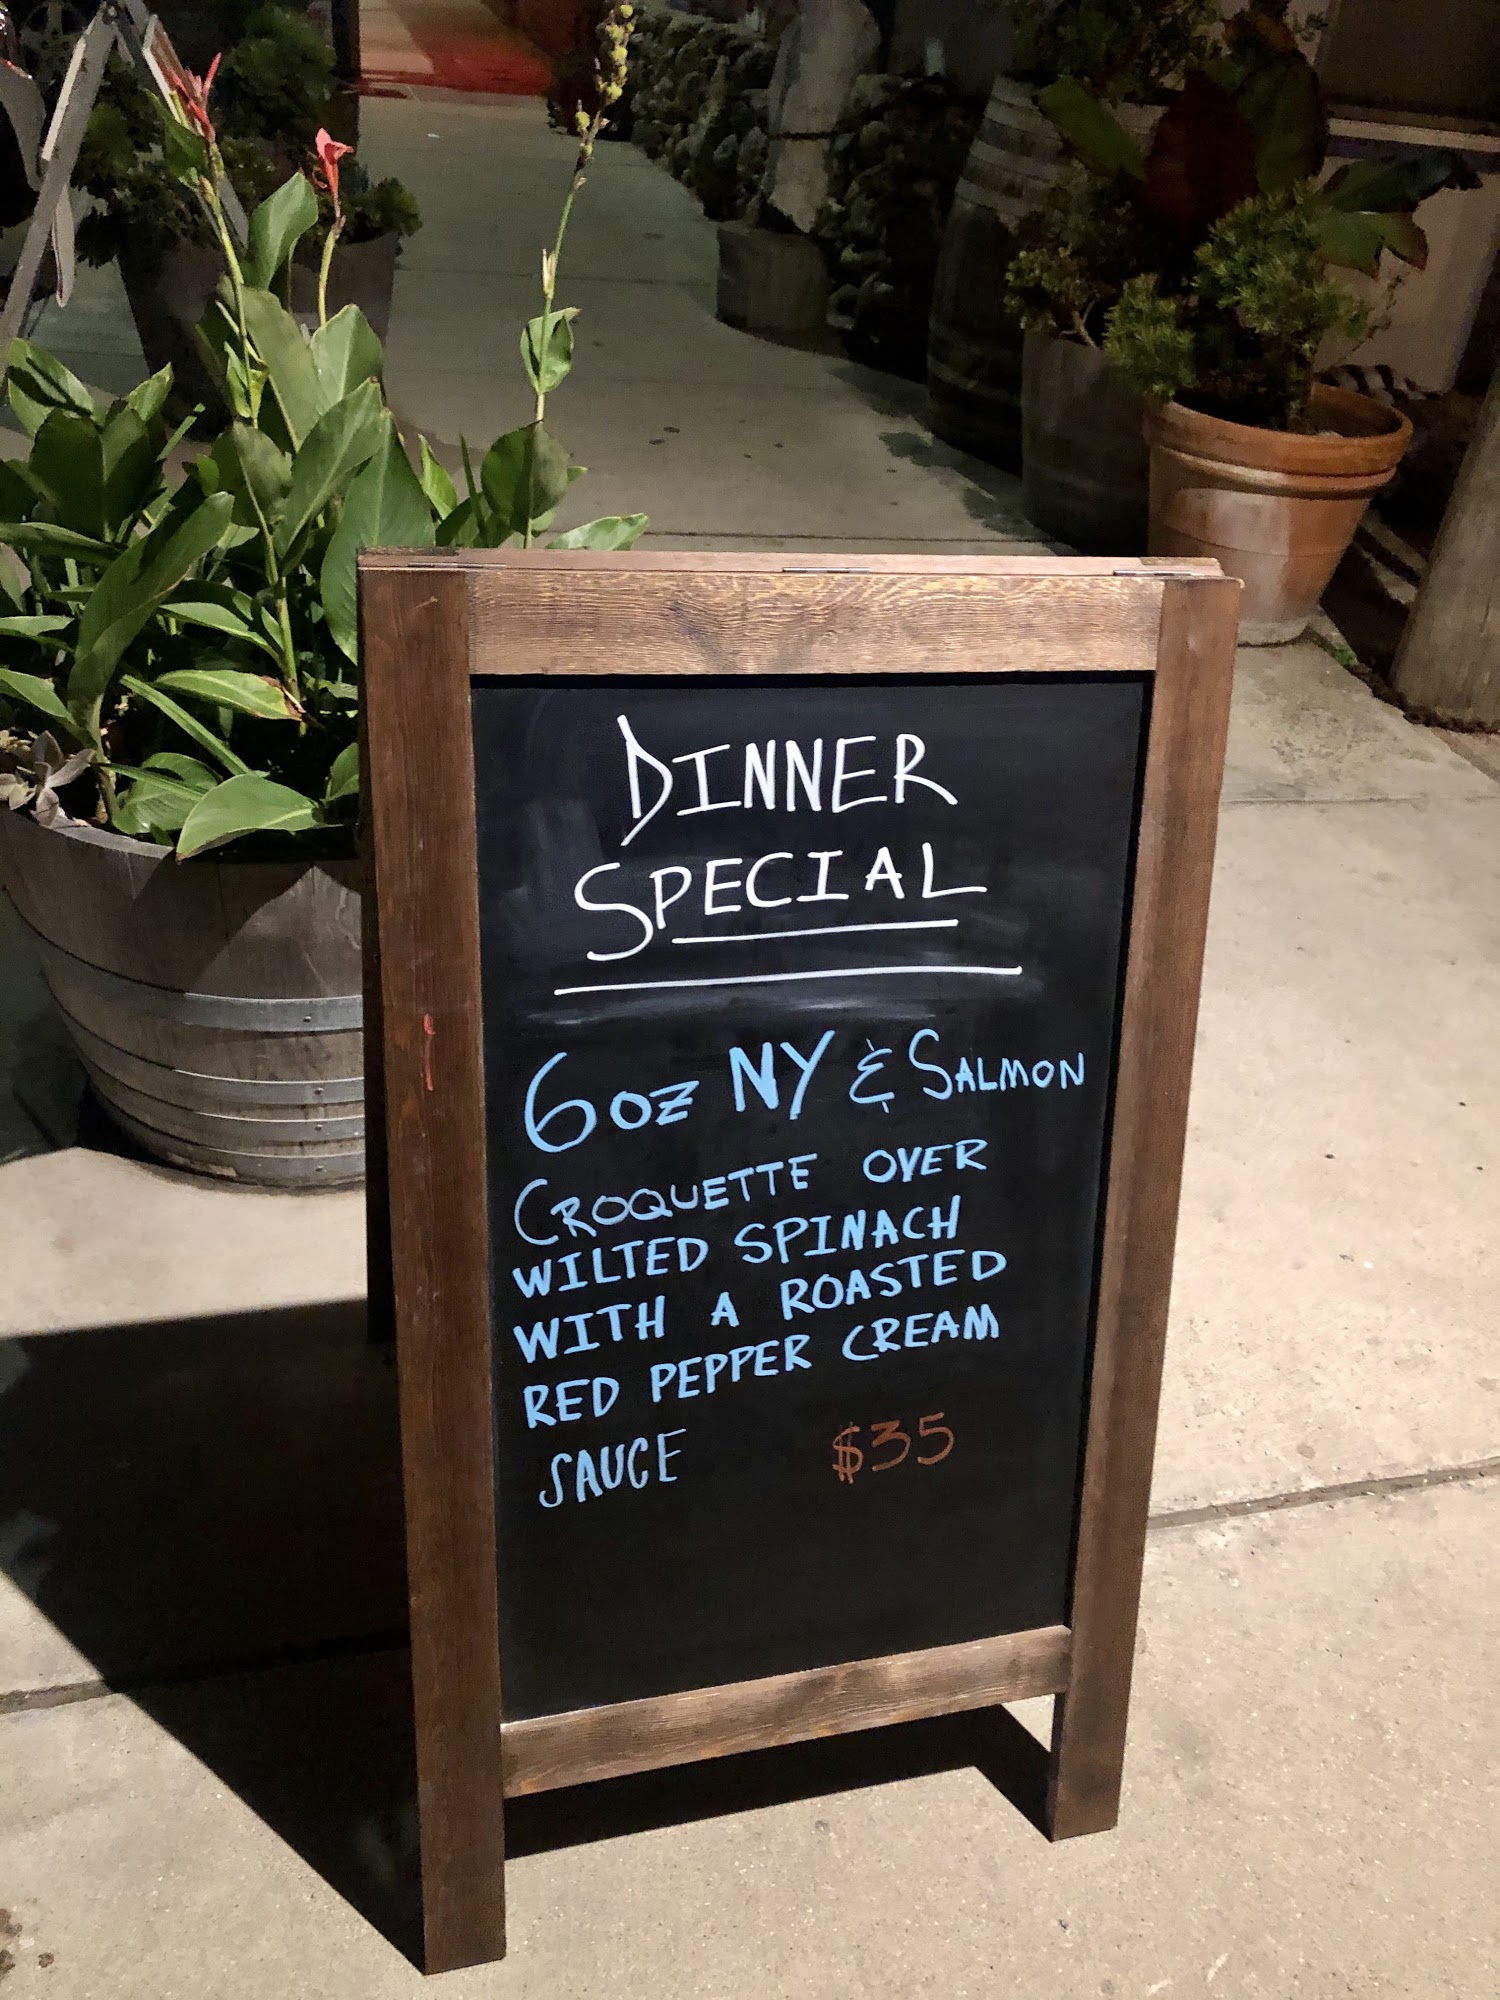 DINNER
SPECIAL
6oz NY & SALMON
CROQUETTE OVER
WILTED SPINACH
WITH A ROASTED
RED PEPPER CREAM
SAUCE $35